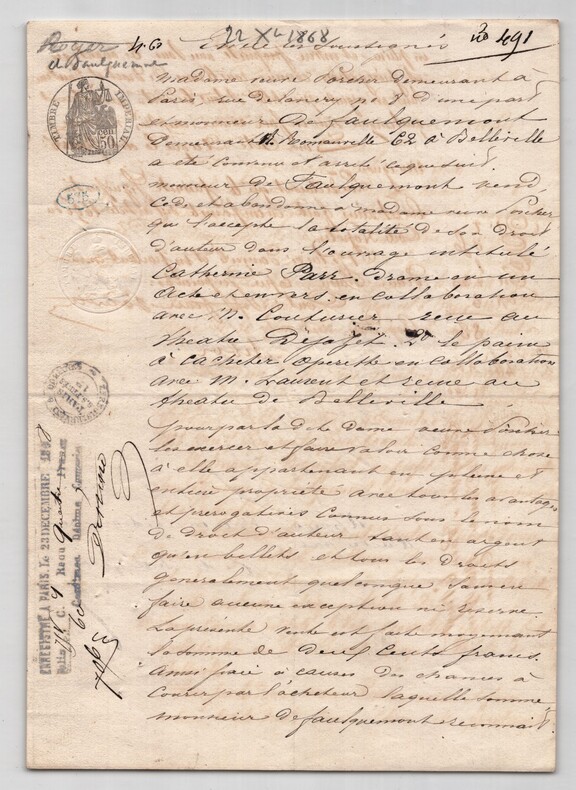 Royer 4.60
de Faulquemont
22 Xbre 1868
no 491
Entre les Soussignés
TIMBRE IMPERIAL
50
Madame veuve Porcher Demeurant à
Paris, rue de Lancry no 7 D'une part
et monsieur De Faulquemont
Demeurant r. Romainville 62 à Belleville
a été convenu et arrêté ce qui suit
monsieur de Faulquemont vend,
cède et abandonne à madame veuve Porcher
qui l'accepte la totalité de Ses Droits
d'auteur dans l'ouvrage intitulé
Catherine Parr. Drame en un
acte et en vers, en collaboration
avec M. Couturier reçu au
theatre Déjazet. 2o le pain
à cacheter operette en collaboration
avec M. Laurent et reçue au
theatre de Belleville
pour par la dite dame veuve Porcher
les exercer et faire valoir comme chose
à elle appartenant en pleine et
entière propriété avec tous les avantages
et prerogatives Connus sous le nom
de droit d'auteur tant en argent
qu'en billets et tous les Droits
generalement quelconque sans en
faire aucune exception ni reserve
La présente vente est faite moyennant
la somme de deux cents francs.
Ainsi fixée à causes des chances à
Courir par l'acheteur laquelle somme
monsieur de faulquemont reconnait
ENREGISTRÉ A PARIS, Le 23 DECEMBRE 1868
Folio C. 9 Reçu quatre Francs
60 Centimes Décime Compris